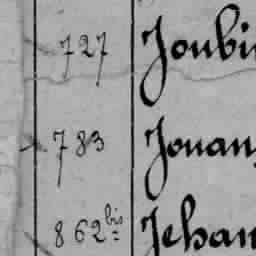 727 Joubi
783 Jouan
862 bis Jehan